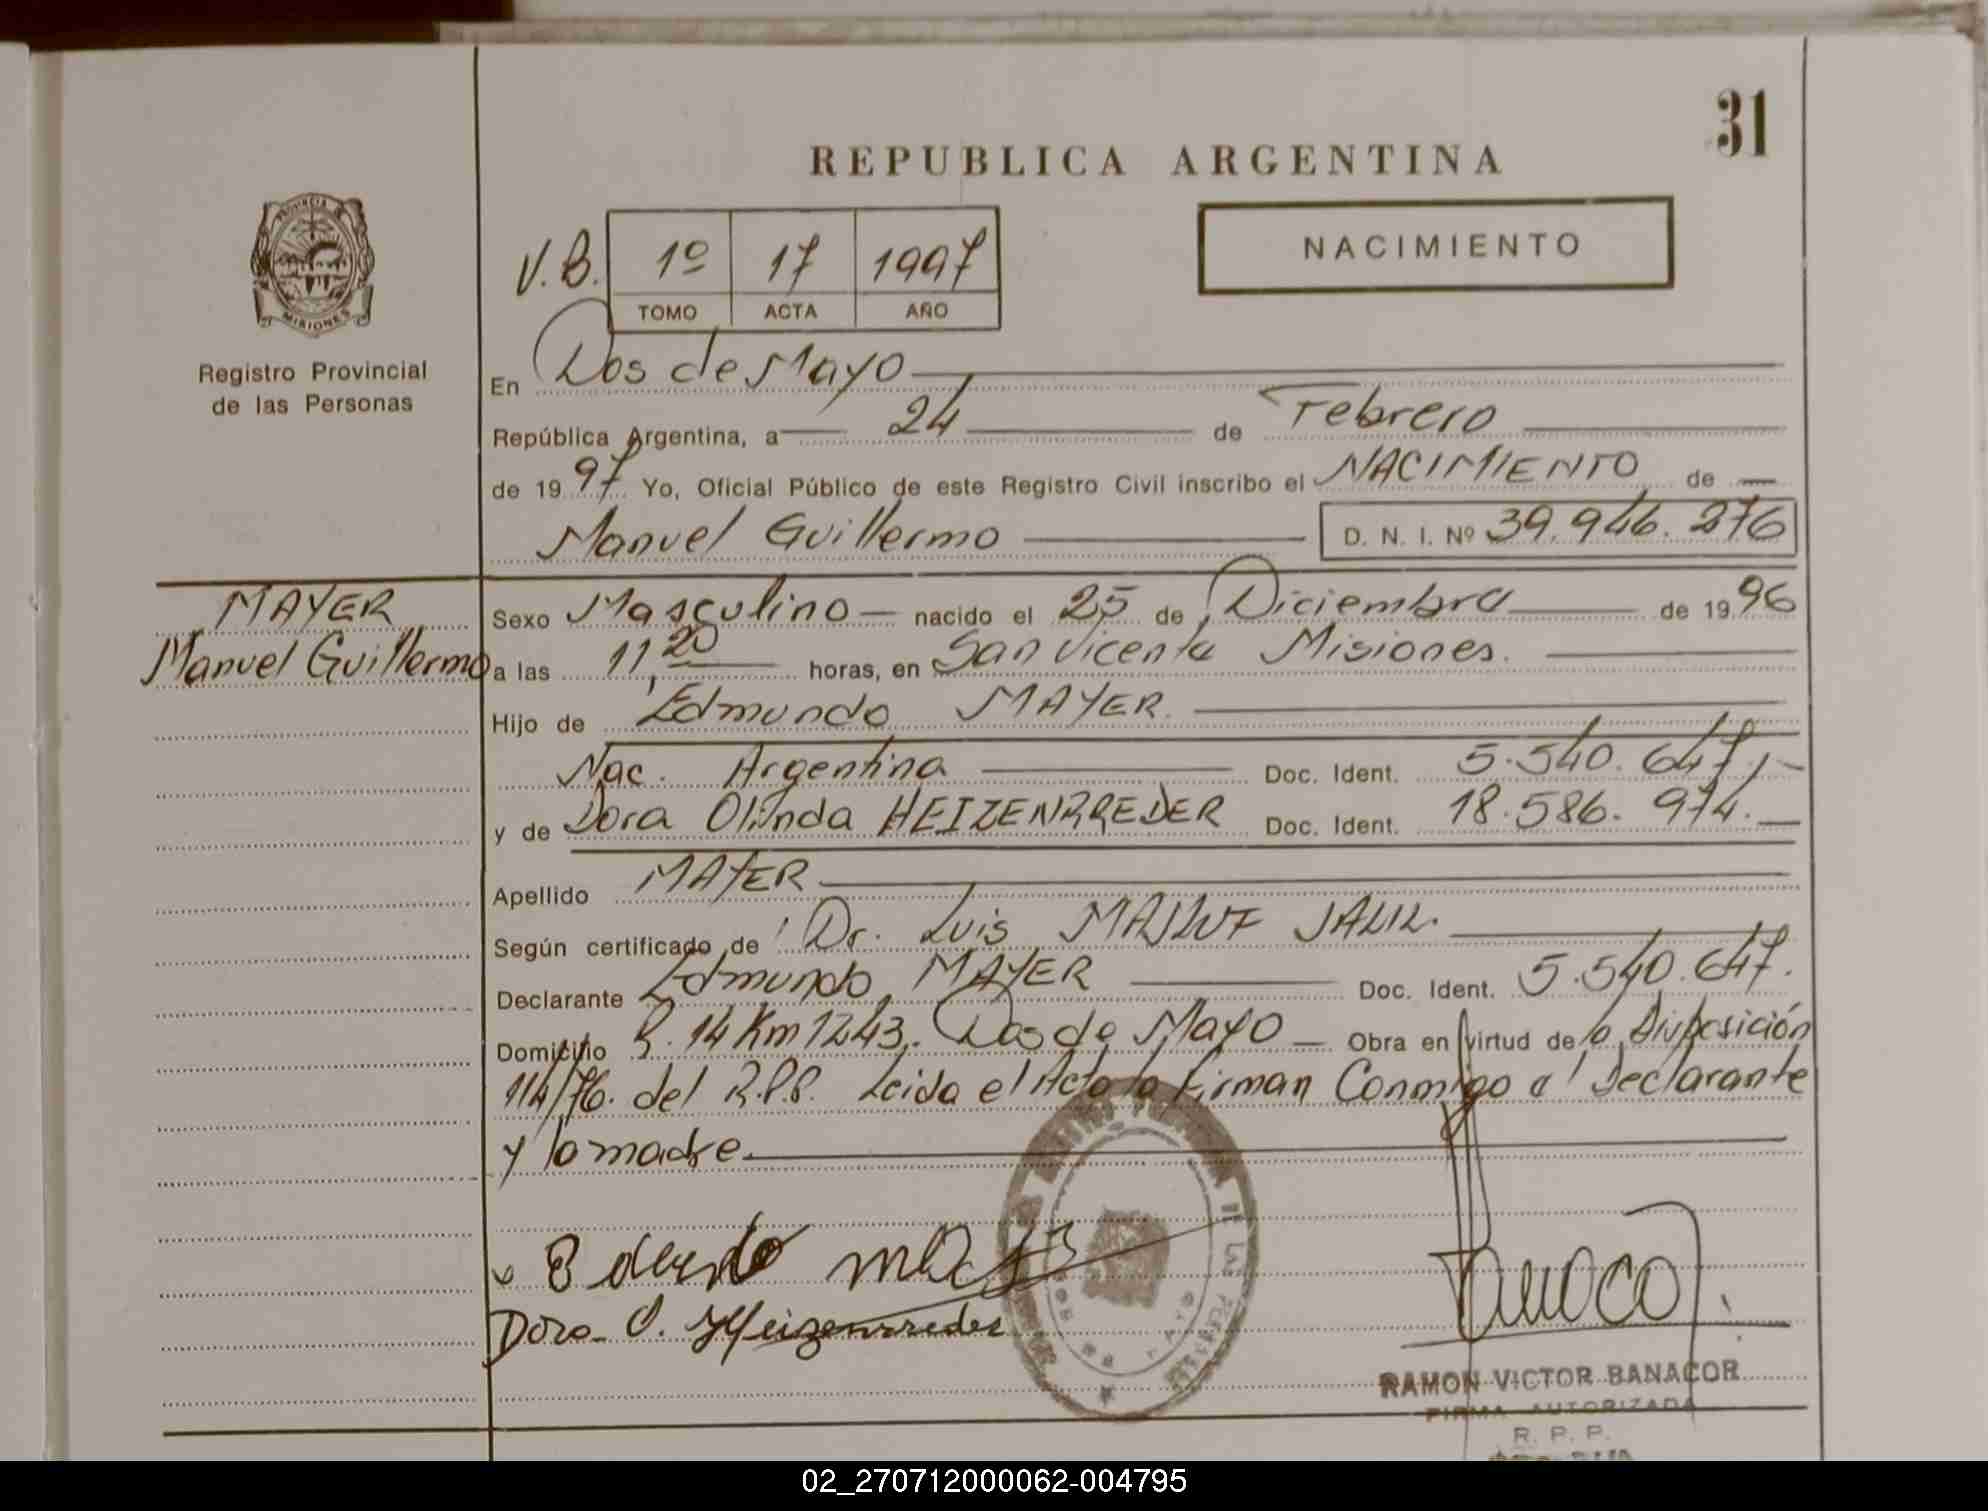 31
REPUBLICA ARGENTINA
NACIMIENTO
V.B. 1º 17 1997
TOMO ACTA AÑO
PROVINCIA DE
MISIONES
Registro Provincial
de las Personas
En Dos de Mayo
República Argentina, a 24 de Febrero
de 1997 Yo, Oficial Público de este Registro Civil inscribo el NACIMIENTO de
Manuel Guillermo D. N. I. Nº 39.946.276
MAYER
Manuel Guillermo
Sexo Masculino nacido el 25 de Diciembre de 1996
a las 11,20 horas, en San Vicente Misiones.
Hijo de Edmundo MAYER.
Nac. Argentina Doc. Ident. 5.540.647,-
y de Dora Olinda HEIZENRREDER Doc. Ident. 18.586.974.
Apellido MAYER
Según certificado de Dr. Luis MAJLUF JALIL.
Declarante Edmundo MAYER Doc. Ident. 5.540.647.
Domicilio R. 14 Km 1243. Dos de Mayo Obra en virtud de la Disposición
114/76. del R.P.P. Leida el Acta la Firman Conmigo el Declarante
y la madre.
Dora O. Heizenrreder
RAMON VICTOR BANACOR
FIRMA AUTORIZADA
R. P. P.
02_270712000062-004795